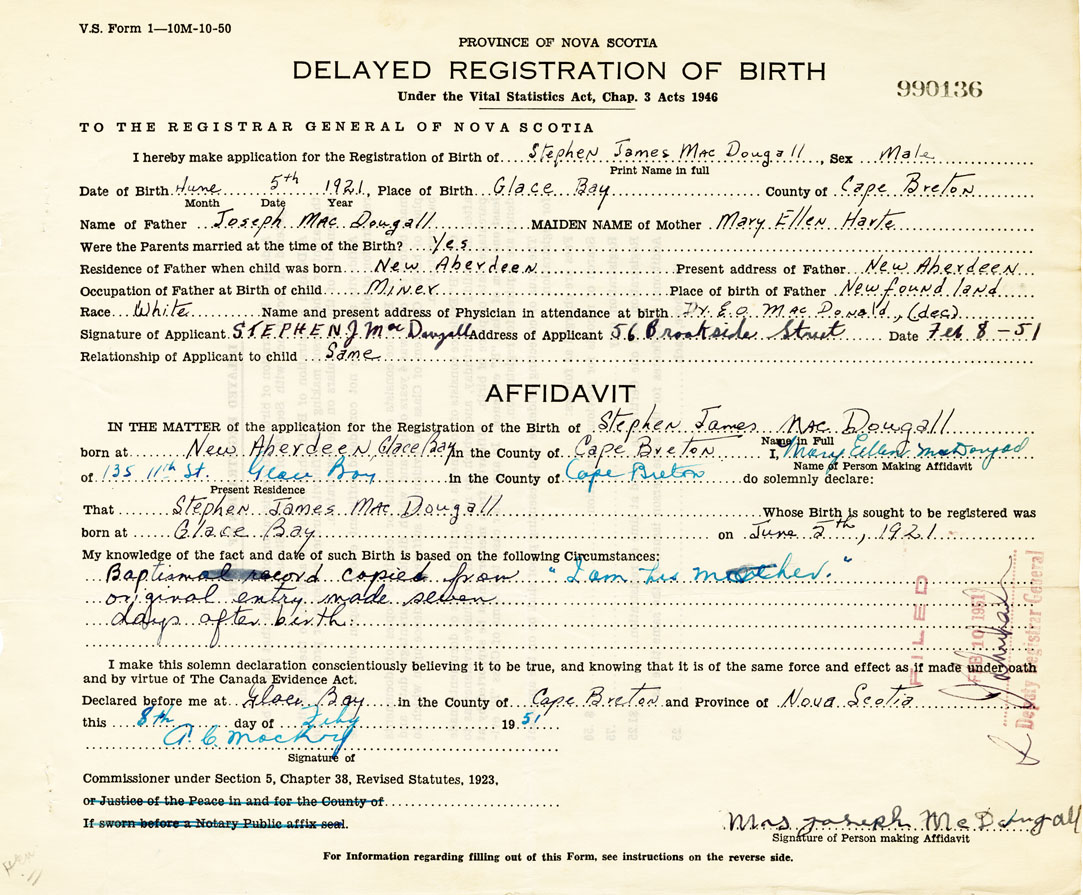 V.S. Form 1—10M-10-50
PROVINCE OF NOVA SCOTIA
DELAYED REGISTRATION OF BIRTH
990136
Under the Vital Statistics Act, Chap. 3 Acts 1946
TO THE REGISTRAR GENERAL OF NOVA SCOTIA
I hereby make application for the Registration of Birth of Stephen James Mac Dougall, Sex Male
Print Name in full
Date of Birth June 5th 1921, Place of Birth Glace Bay County of Cape Breton
Month Date Year
Name of Father Joseph Mac Dougall MAIDEN NAME of Mother Mary Ellen Harte
Were the Parents married at the time of the Birth? Yes
Residence of Father when child was born New Aberdeen Present address of Father New Aberdeen
Occupation of Father at Birth of child Miner Place of birth of Father Newfoundland
Race White Name and present address of Physician in attendance at birth Dr. E.O. Mac Donald, (dec)
Signature of Applicant STEPHEN J. Mac Dougall Address of Applicant 56 Brookside Street Date Feb 8-51
Relationship of Applicant to child Same
AFFIDAVIT
IN THE MATTER of the application for the Registration of the Birth of Stephen James Mac Dougall
Name in Full
born at New Aberdeen, Glace Bay in the County of Cape Breton I, Mary Ellen MacDougad
Name of Person Making Affidavit
of 135 11th St. Glace Bay in the County of Cape Breton do solemnly declare:
Present Residence
That Stephen James Mac Dougall Whose Birth is sought to be registered was
born at Glace Bay on June 5th, 1921
My knowledge of the fact and date of such Birth is based on the following Circumstances:
Baptismal record copied from "I am his mother."
original entry made seven
days after birth.
I make this solemn declaration conscientiously believing it to be true, and knowing that it is of the same force and effect as if made under oath
and by virtue of The Canada Evidence Act.
Declared before me at Glace Bay in the County of Cape Breton and Province of Nova Scotia
this 8th day of Feby 1951
Signature of
Commissioner under Section 5, Chapter 38, Revised Statutes, 1923,
or Justice of the Peace in and for the County of
If sworn before a Notary Public affix seal.
Mrs Joseph McDougall
Signature of Person making Affidavit
For Information regarding filling out of this Form, see instructions on the reverse side.
FILED
FEB 10 1951
Deputy Registrar General